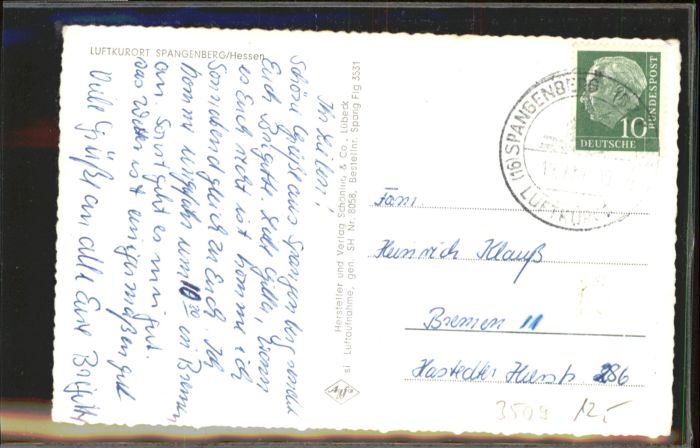 LUFTKURORT SPANGENBERG/Hessen
Ihr Lieben!
Schöne Grüße aus Spangenberg sendet
Euch Brigitte. Liebe Gilla, wenn
es Euch recht ist komme ich
Sonnabend gleich zu Euch. Ich
komme ungefähr um 10 30 in Bremen
an. Sonst geht es mir gut.
Das Wetter ist einigermaßen gut
Viele Grüße an alle Eure Brigitte
Hersteller und Verlag Schöning & Co., Lübeck
si Luftaufnahme, gen. SH Nr. 8058, Bestellnr. Spang Fig 3531
10
DEUTSCHE
BUNDESPOST
(16) SPANGENBERG
LUFTKURORT
Fam.
Heinrich Klauß
Bremen 11
Hastedter Heerstr 286
3509 12,-